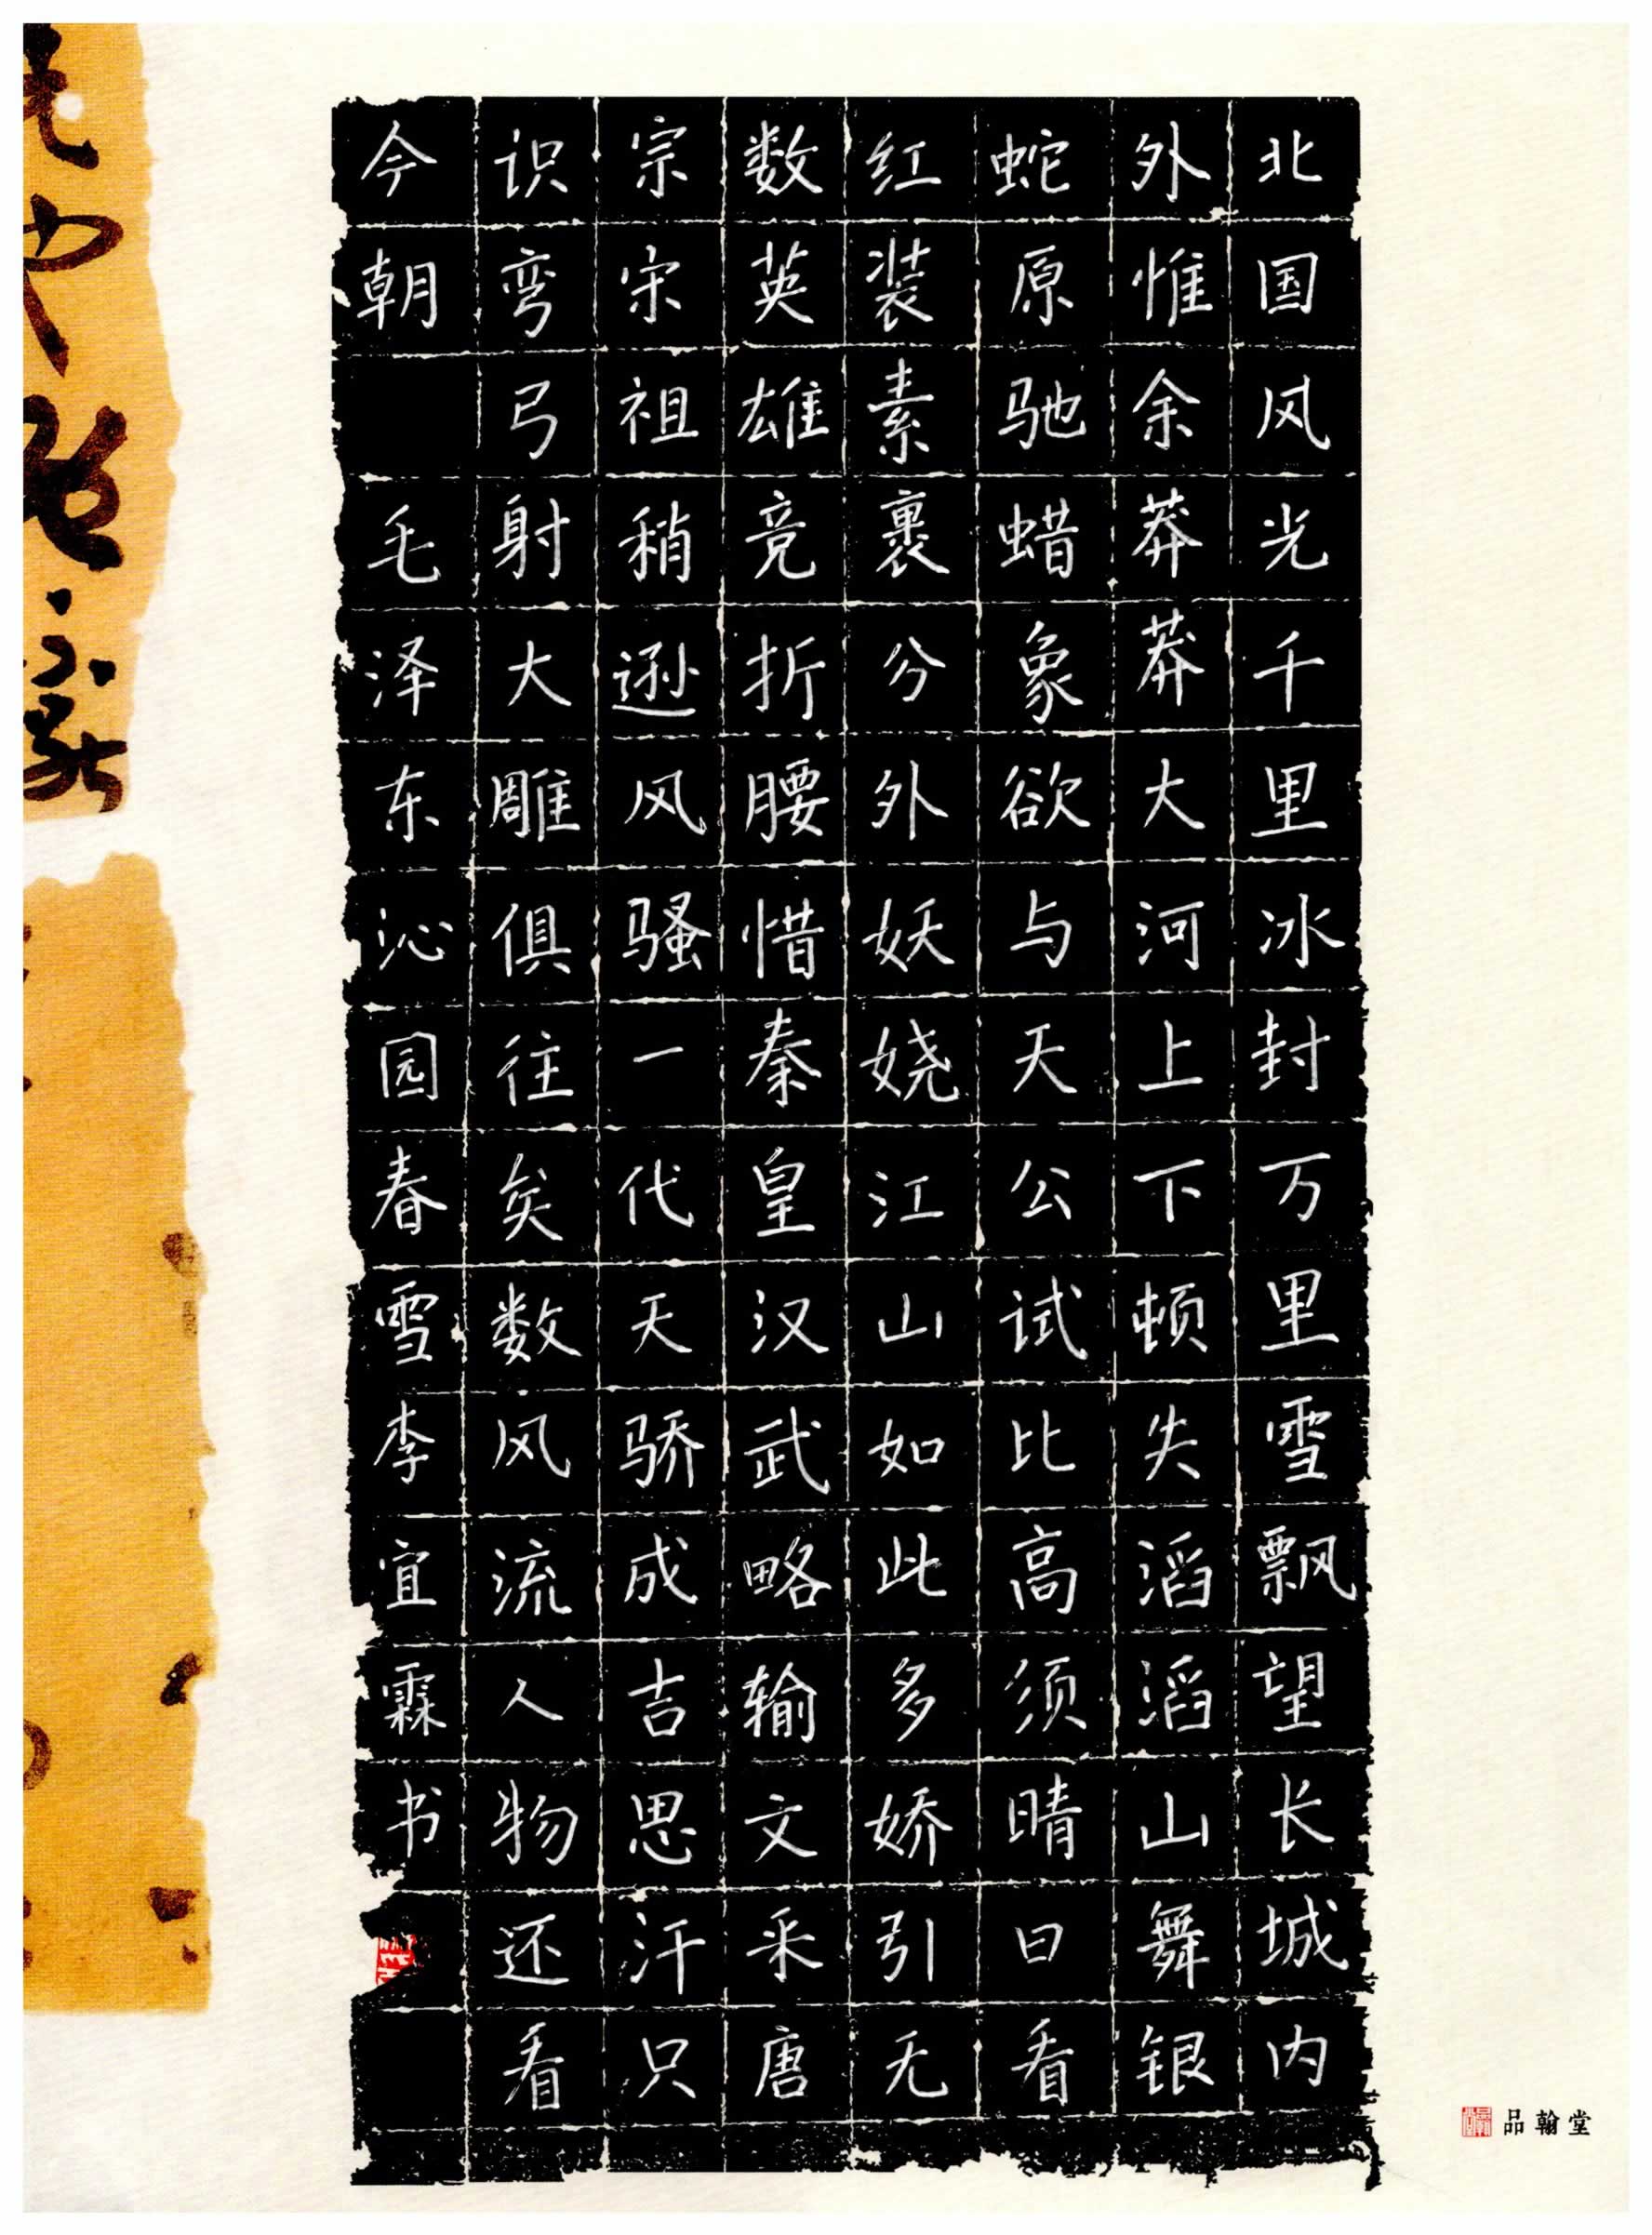 北国风光千里冰封万里雪飘望长城内
外惟余莽莽大河上下顿失滔滔山舞银
蛇原驰蜡象欲与天公试比高须晴日看
红装素裹分外妖娆江山如此多娇引无
数英雄竞折腰惜秦皇汉武略输文采唐
宗宋祖稍逊风骚一代天骄成吉思汗只
识弯弓射大雕俱往矣数风流人物还看
今朝 毛泽东沁园春雪李宜霖书
品翰堂